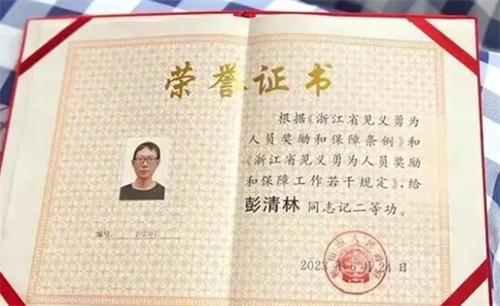 荣誉证书
根据《浙江省见义勇为
人员奖励和保障条例》和
《浙江省见义勇为人员奖励
和保障工作若干规定》,给
彭清林同志记二等功。
编号
市人民
2023年6月24日